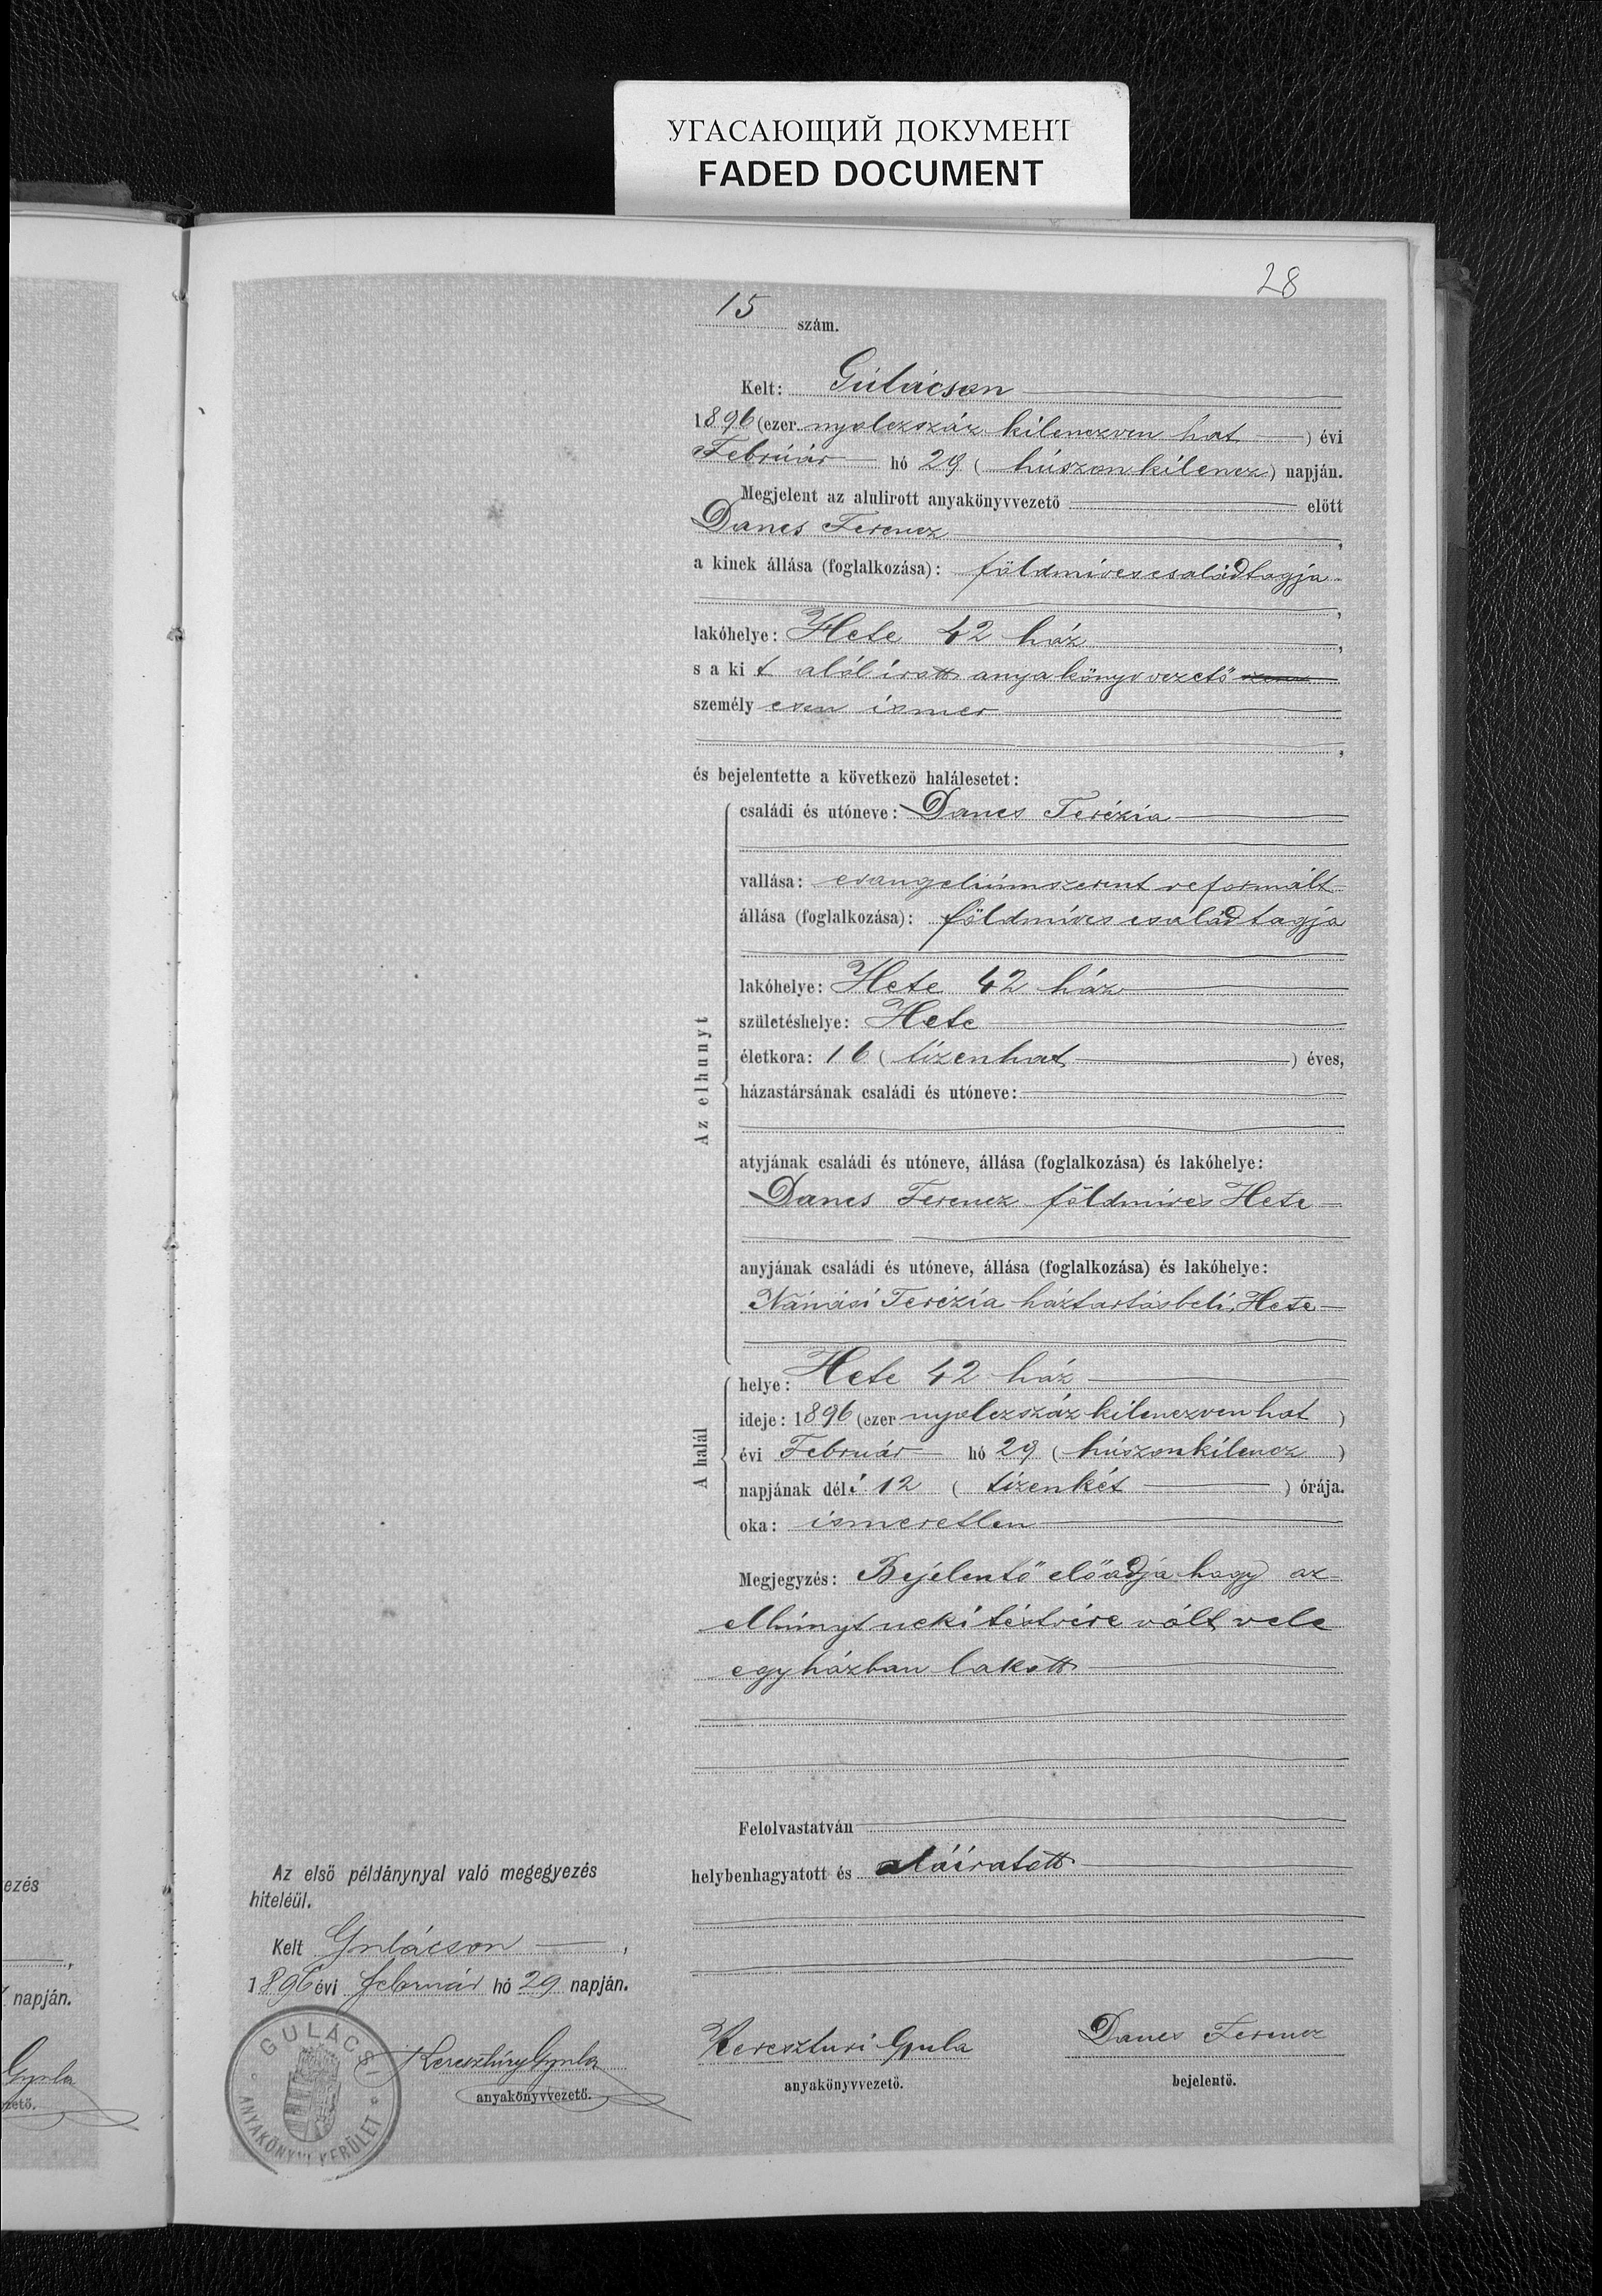 УГАСАЮЩИЙ ДОКУМЕНТ
FADED DOCUMENT
28
15 szám.
Kelt: Gúlácson
1896 (ezer nyolczszáz kilenczven hat) évi
Február hó 29 (húszonkilencz) napján.
Megjelent az alulirott anyakönyvvezető előtt
Dancs Ferencz,
a kinek állása (foglalkozása): földmívescsaládtagja
,
lakóhelye: Hete 42 ház,
s a kit alólírott anyakönyvvezető
személyesen ismer
,
és bejelentette a következő halálesetet:
Az elhunyt
családi és utóneve: Dancs Terézia
vallása: evangeliúmszerint reformált
állása (foglalkozása): földmíves családtagja
lakóhelye: Hete 42 ház
születéshelye: Hete
életkora: 16 (tizenhat) éves,
házastársának családi és utóneve:
atyjának családi és utóneve, állása (foglalkozása) és lakóhelye:
Dancs Ferencz földmíves Hete
anyjának családi és utóneve, állása (foglalkozása) és lakóhelye:
Nánási Terézia háztartásbeli, Hete
A halál
helye: Hete 42 ház
ideje: 1896 (ezer nyolczszáz kilenczvenhat)
évi Február hó 29 (húszonkilencz)
napjának déli 12 (tizenkét) órája.
oka: ismeretlen
Megjegyzés: Bejelentő előadja hogy az
elhúnyt neki téstvére vólt vele
egyházban lakott
Felolvastatván
helybenhagyatott és aláiratott
Az első példánynyal való megegyezés
hiteléül.
Kelt Gulácson,
1896 évi február hó 29 napján.
GULÁCSI
ANYAKÖNYVI KERÜLET
Keresztúry Gyula
anyakönyvvezető.
Kereszturi Gyula
anyakönyvvezető.
Dancs Ferencz
bejelentő.
ezés
napján.
Gyula
zető.